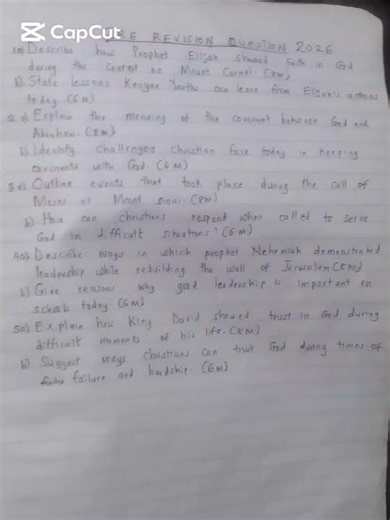 CapCut
E REVISION QUESTION 2026
1a) Describe how Prophet Elijah showed faith in God
during the contest on Mount Carmel (8M)
b) State lessons Kenyan Youths can learn from Elijah's actions
today (6M)
2 a) Explain the meaning of the covenant between God and
Abraham. (8M)
b) Identify challenges Christian face today in keeping
covenants with God. (6M)
3 a) Outline events that took place during the call of
Moses at Mount Sinai. (8M)
b) How can christians respond when called to serve
God in difficult situations? (6M)
4a) Describe ways in which prophet Nehemiah demonstrated
leadership while rebuilding the wall of Jerusalem (8M)
b) Give reasons why good leadership is important in
schools today (6M)
5a) Explain how King David showed trust in God during
difficult moments of his life. (8M)
b) Suggest ways christians can trust God during times of
failure and hardship. (6M)